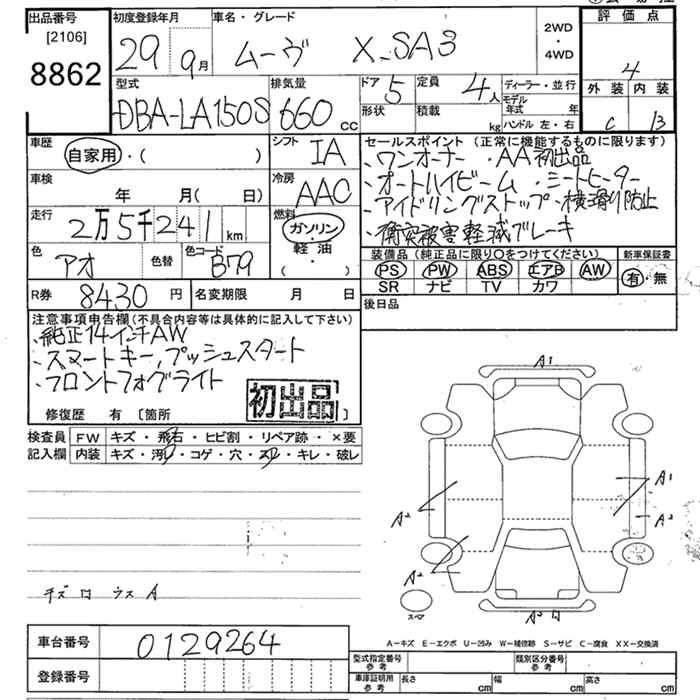 出品番号 初度登録年月 車名・グレード 2WD・4WD 評価点
[2106]
8862 29年 9月 ムーヴ X SA3 4
型式 排気量 ドア 5 定員 4人 ディーラー・並行 外装 内装
DBA-LA150S 660cc 形状 積載 kg モデル年式 年 C B
ハンドル 左・右
車歴 自家用・( ) シフト IA
セールスポイント(正常に機能するものに限ります)
・ワンオーナー ・AA初出品
車検 年 月( 日) 冷房 AAC
・オートハイビーム ・シートヒーター
・アイドリングストップ・横滑り防止
走行 2万5千241km 燃料 ガソリン・軽油・( )
・衝突被害軽減ブレーキ
色 アオ 色替 色コード B79
装備品(純正品に限り○をつけてください) 新車保証書
PS PW ABS エアB AW 有・無
SR ナビ TV カワ
R券 8430円 名変期限 月 日
後日品
注意事項申告欄(不具合内容等は具体的に記入して下さい)
・純正14インチAW
・スマートキー、プッシュスタート
・フロントフォグライト
初出品
修復歴 有 〔箇所 〕
検査員 FW キズ・飛石・ヒビ割・リペア跡・×要
記入欄 内装 キズ・汚レ・コゲ・穴・スレ・キレ・破レ
A1
A1
A2
A2
A2
キズ ロ ウス A
スペア
A2
A-キズ E-エクボ U-凹み W-補修跡 S-サビ C-腐食 XX-交換済
車台番号 0129264
登録番号
型式指定番号 参考 類別区分番号 参考
車庫証明用 参考 長さ cm 幅 cm 高さ cm